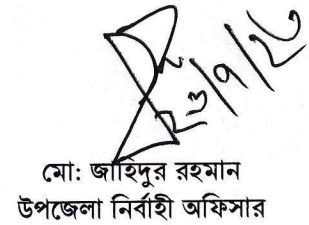 মো: জাহিদুর রহমান
উপজেলা নির্বাহী অফিসার